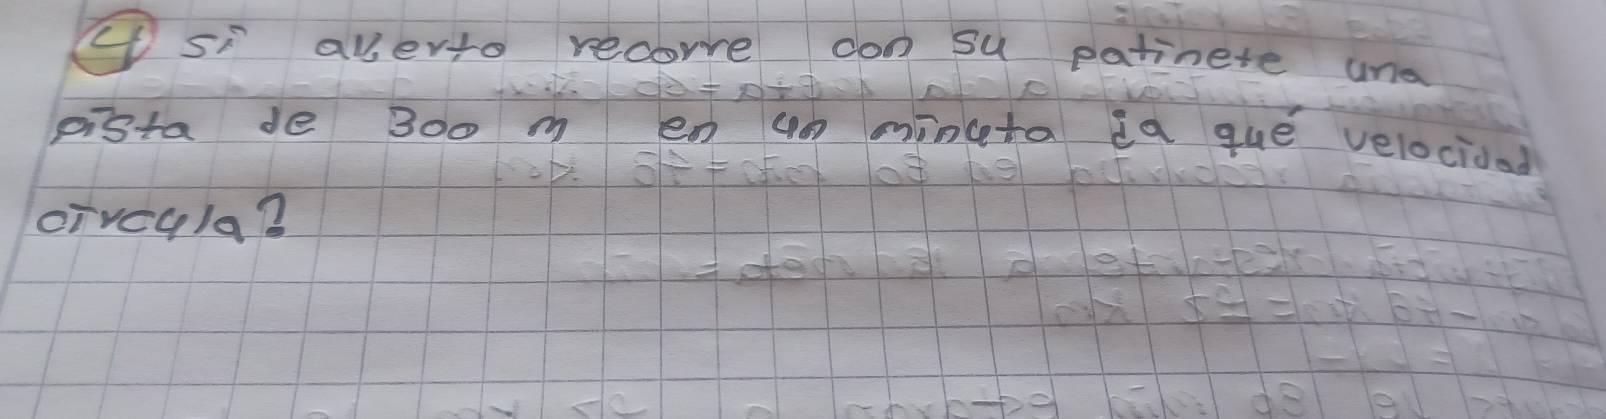 4 si alverto recorre con su patinete una
pista de 300 m en un minuto ¿a qué velocidad
circula?